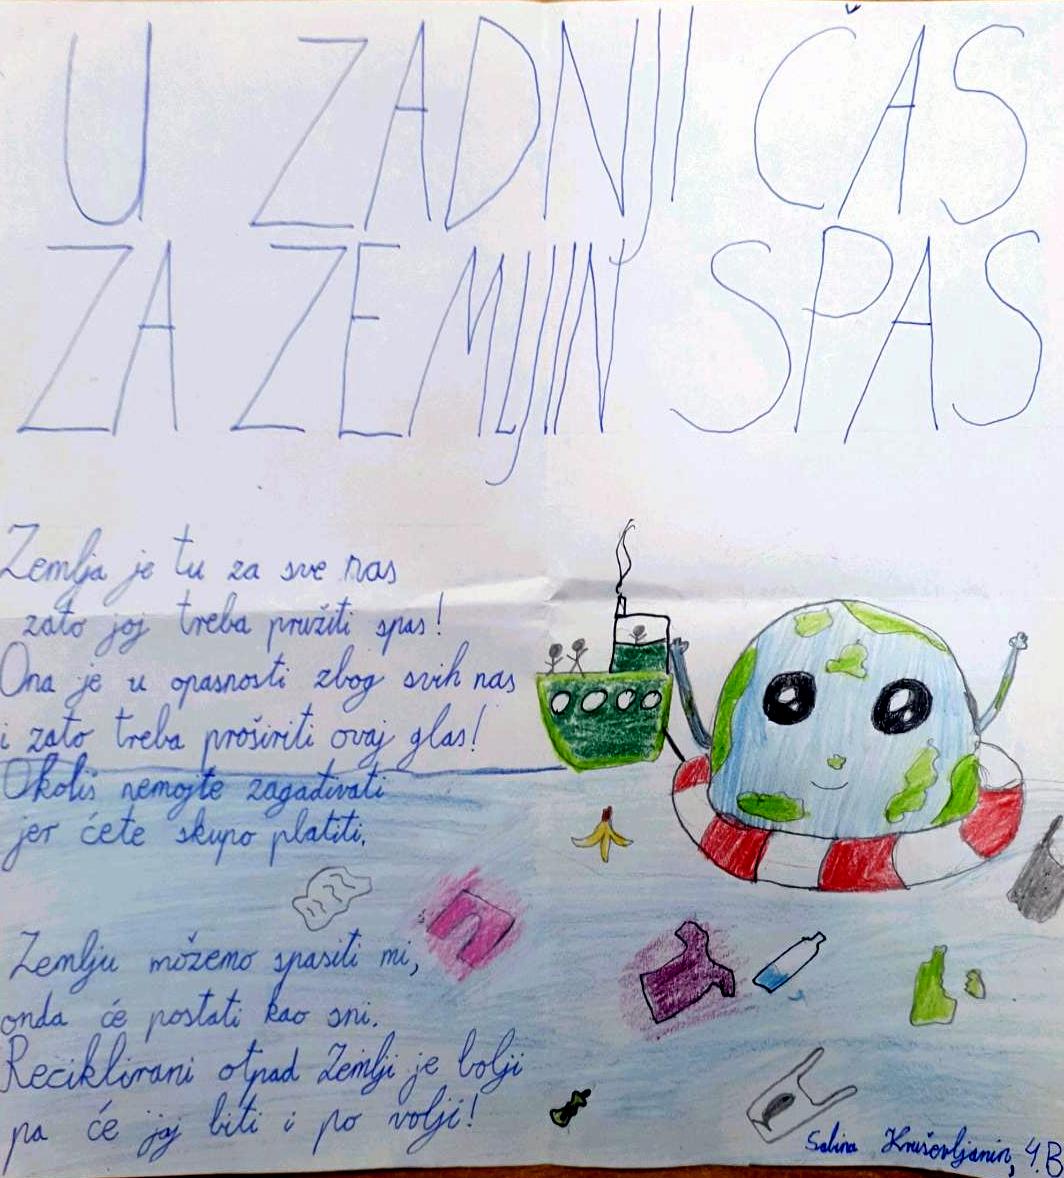 U ZADNJI ČAS
ZA ZEMLJIN SPAS
Zemlja je tu za sve nas
zato joj treba pružiti spas!
Ona je u opasnosti zbog svih nas
i zato treba proširiti ovaj glas!
Okoliš nemojte zagađivati
jer ćete skupo platiti.
Zemlju možemo spasiti mi,
onda će postati kao sni.
Reciklirani otpad Zemlji je bolji
pa će joj biti i po volji!
Sabina Kruševljanin, 4.B